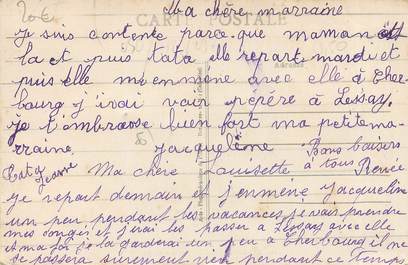 Ma chère marraine
CARTE POSTALE
Je suis contente parce que maman est
la et puis tata elle repart mardi et
puis elle m emmène avec elle à Cher-
bourg j'irai voir pépère à Lessay.
Je t'embrasse bien fort ma petite ma-
rraine. Jacqueline
Bons baisers
à tous Renée
Tata Jeanne
Ma chère Louisette
je repart demain et j'enmène Jacqueline
un peu pendant les vacances, je vais prendre
mes congés et j'irai les passer a Lessay avec elle
et ma foi la garderai un peu à Cherbourg il ne
se passera surement rien pendant ce temps